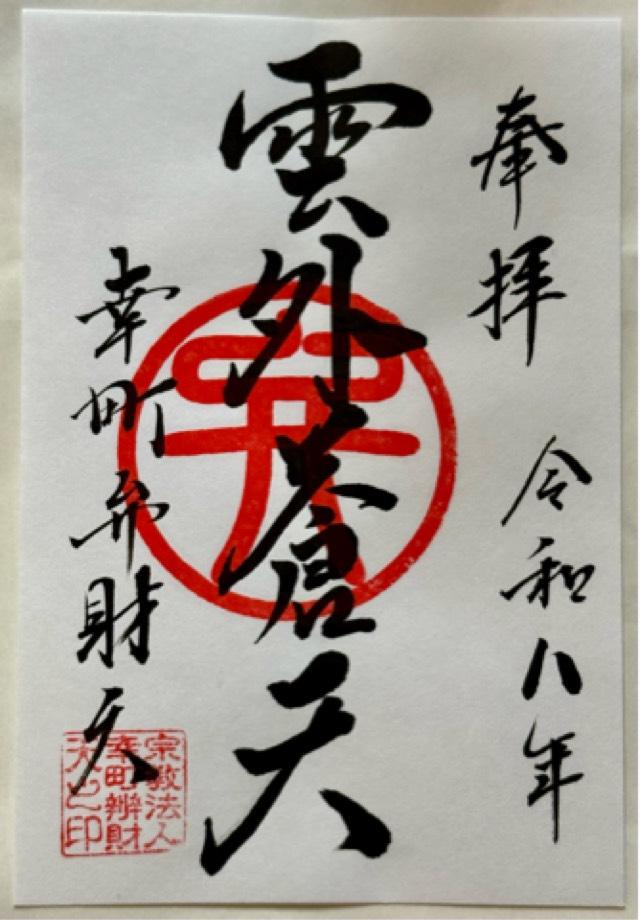 奉拝
令和八年
雲外蒼天
幸町弁財天
宗教法人
幸町辨財
天之印